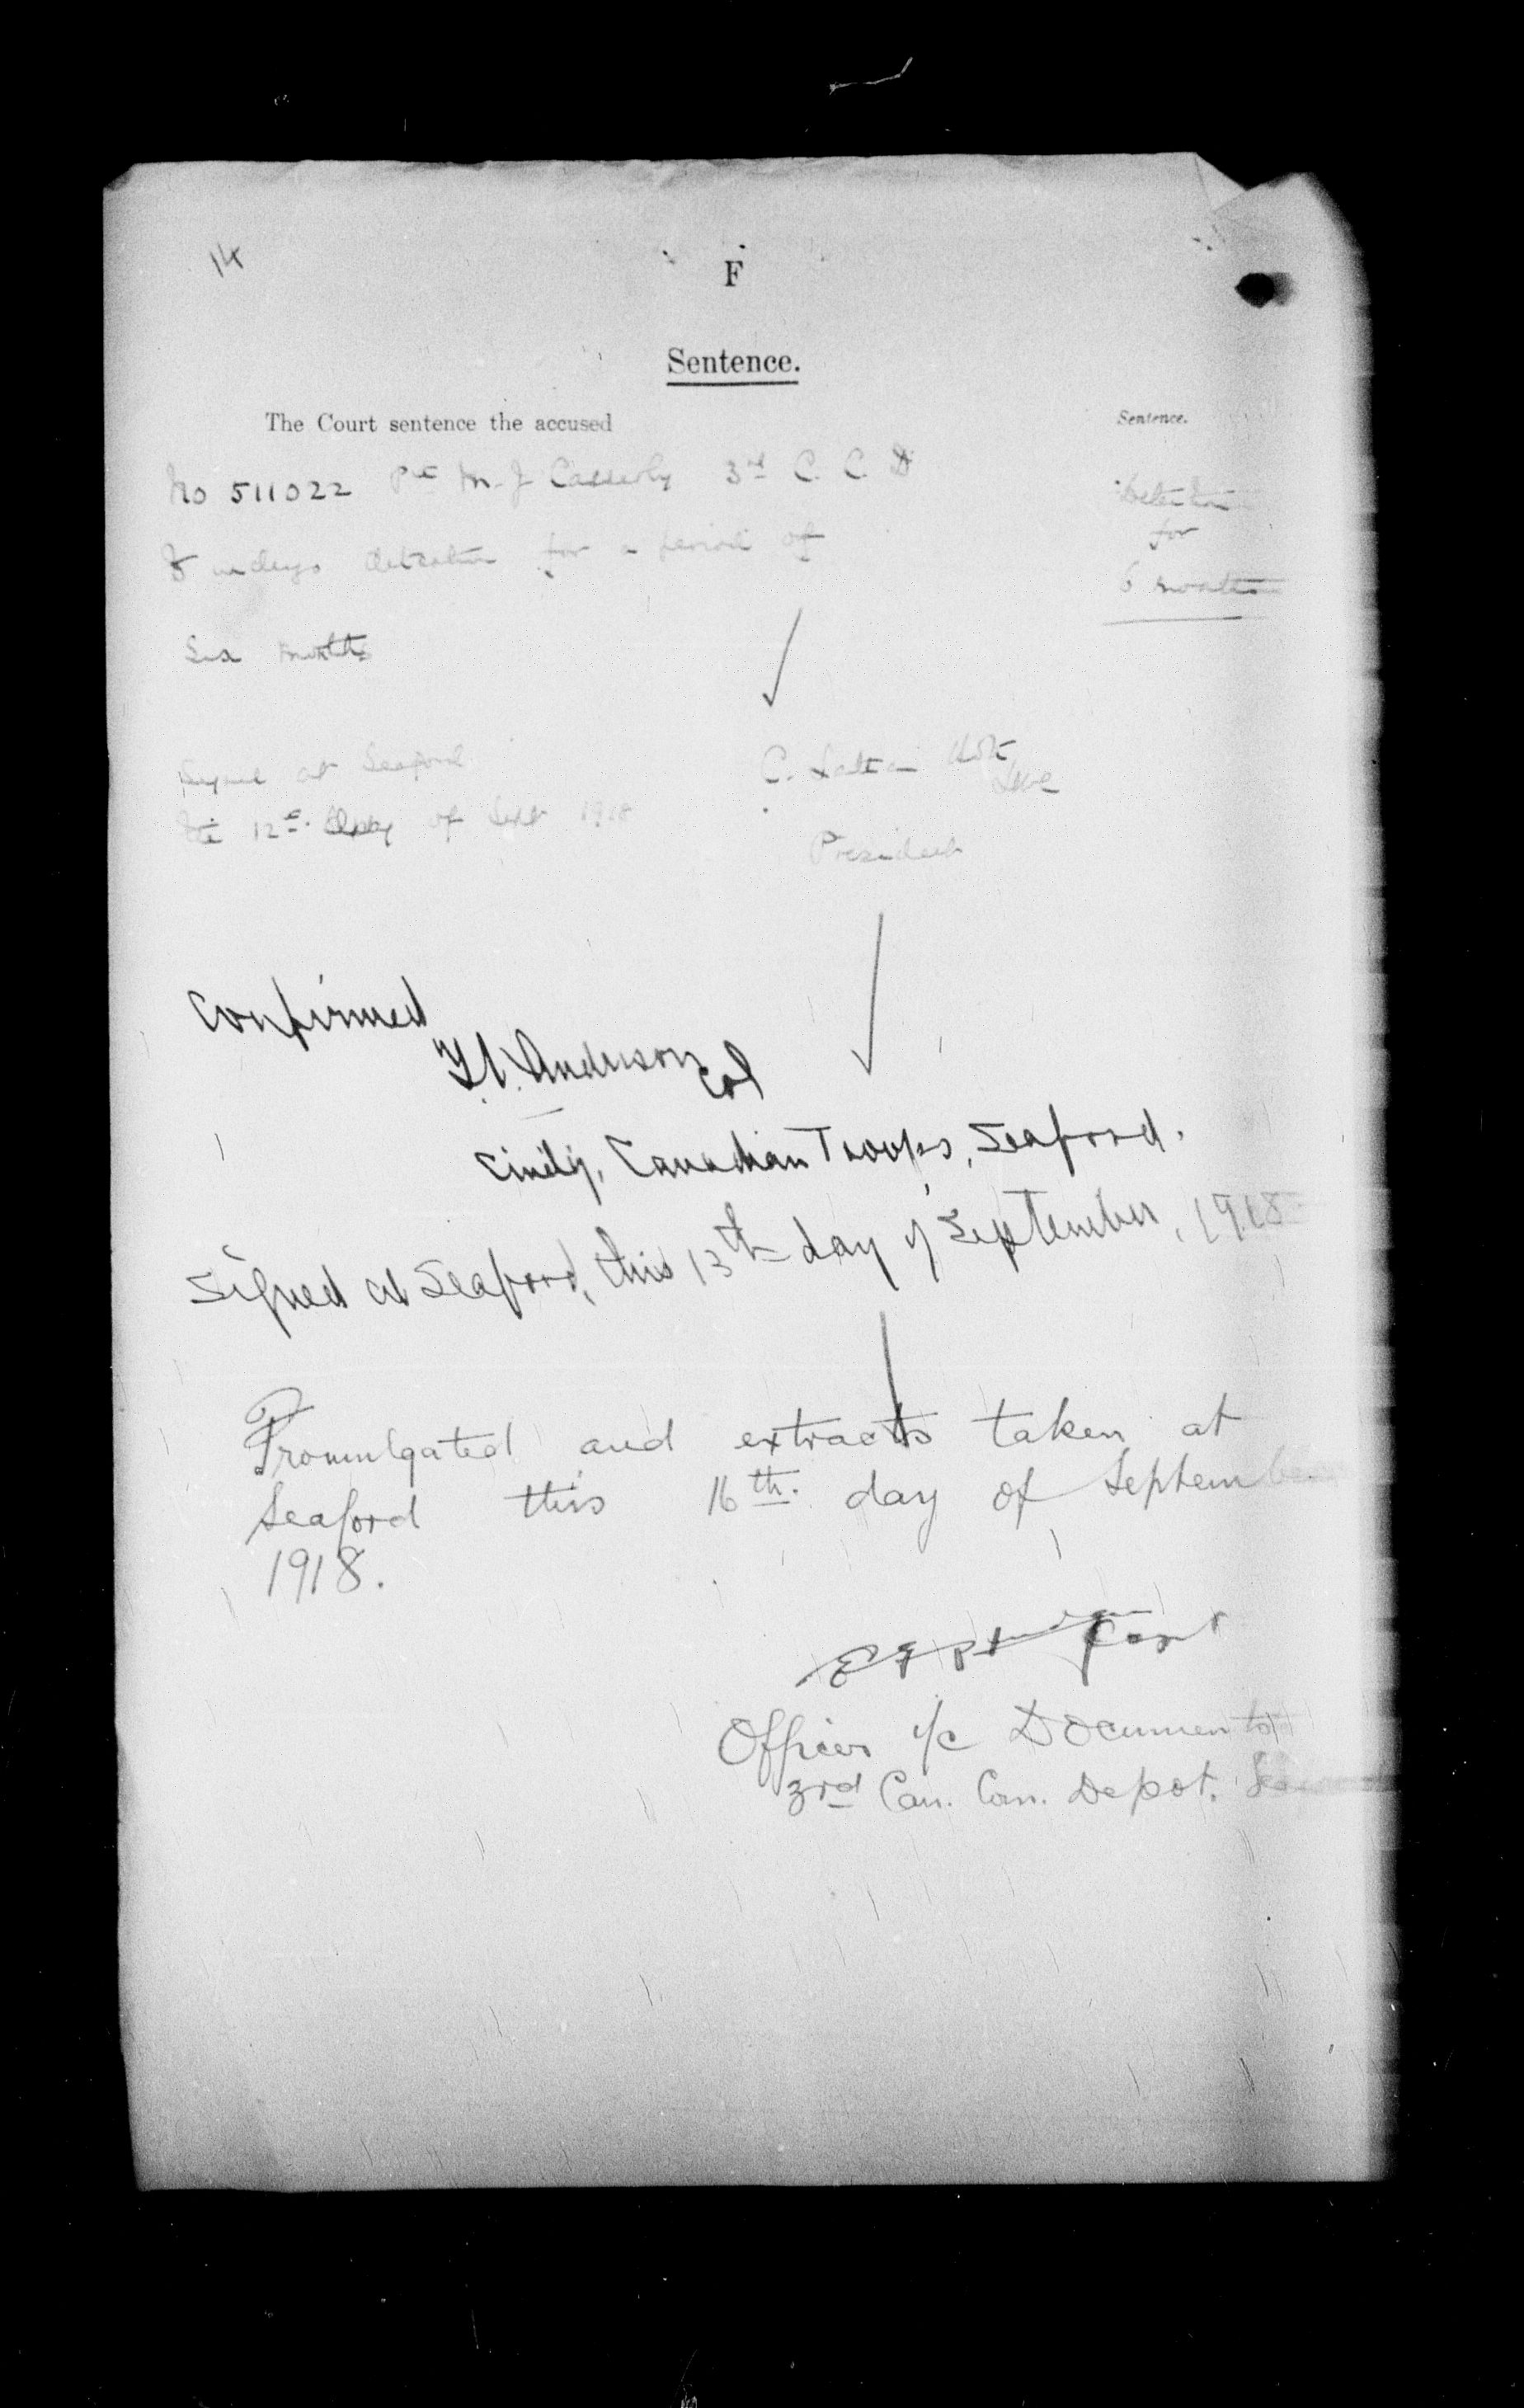 14
F
Sentence.
The Court sentence the accused
Sentence.
No 511022 Pte M. J. Casserly 3rd C. C. D
To undergo detention for a period of
Detention
for
6 months
Six months
Signed at Seaford
this 12th day of Sept 1918
C.
President
Confirmed
Anderson Col
Cmdg. Canadian Troops, Seaford.
Signed at Seaford, this 13th day of September, 1918
Promulgated and extracts taken at
Seaford this 16th. day of September
1918.
Capt
Officer i/c Documents
3rd Can. Con. Depot.